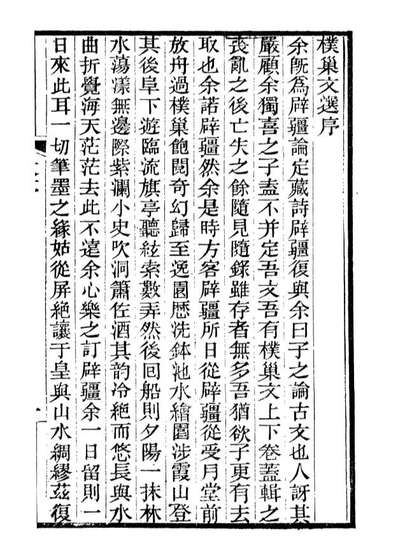 樸巢文選序
余旣爲辟疆論定藏詩辟疆復與余曰子之論古文也人訝其
嚴顧余獨喜之子盍不并定吾文吾有樸巢文上下卷蓋輯之
喪亂之後亡失之餘隨見隨錄雖存者無多吾猶欲子更有去
取也余諾辟疆然余是時方客辟疆所日從辟疆從受月堂前
放舟過樸巢飽閱奇幻歸至逸園歷洗鉢池水繪圖涉霞山登
其後阜下遊臨流旗亭聽絃索數弄然後回船則夕陽一抹林
水蕩漾無邊際紫瀾小史吹洞簫佐酒其韵冷絶而悠長與水
曲折覺海天茫茫去此不遠余心樂之訂辟疆余一日留則一
日來此耳一切筆墨之緣姑從屏絶讓于皇與山水綢繆茲復